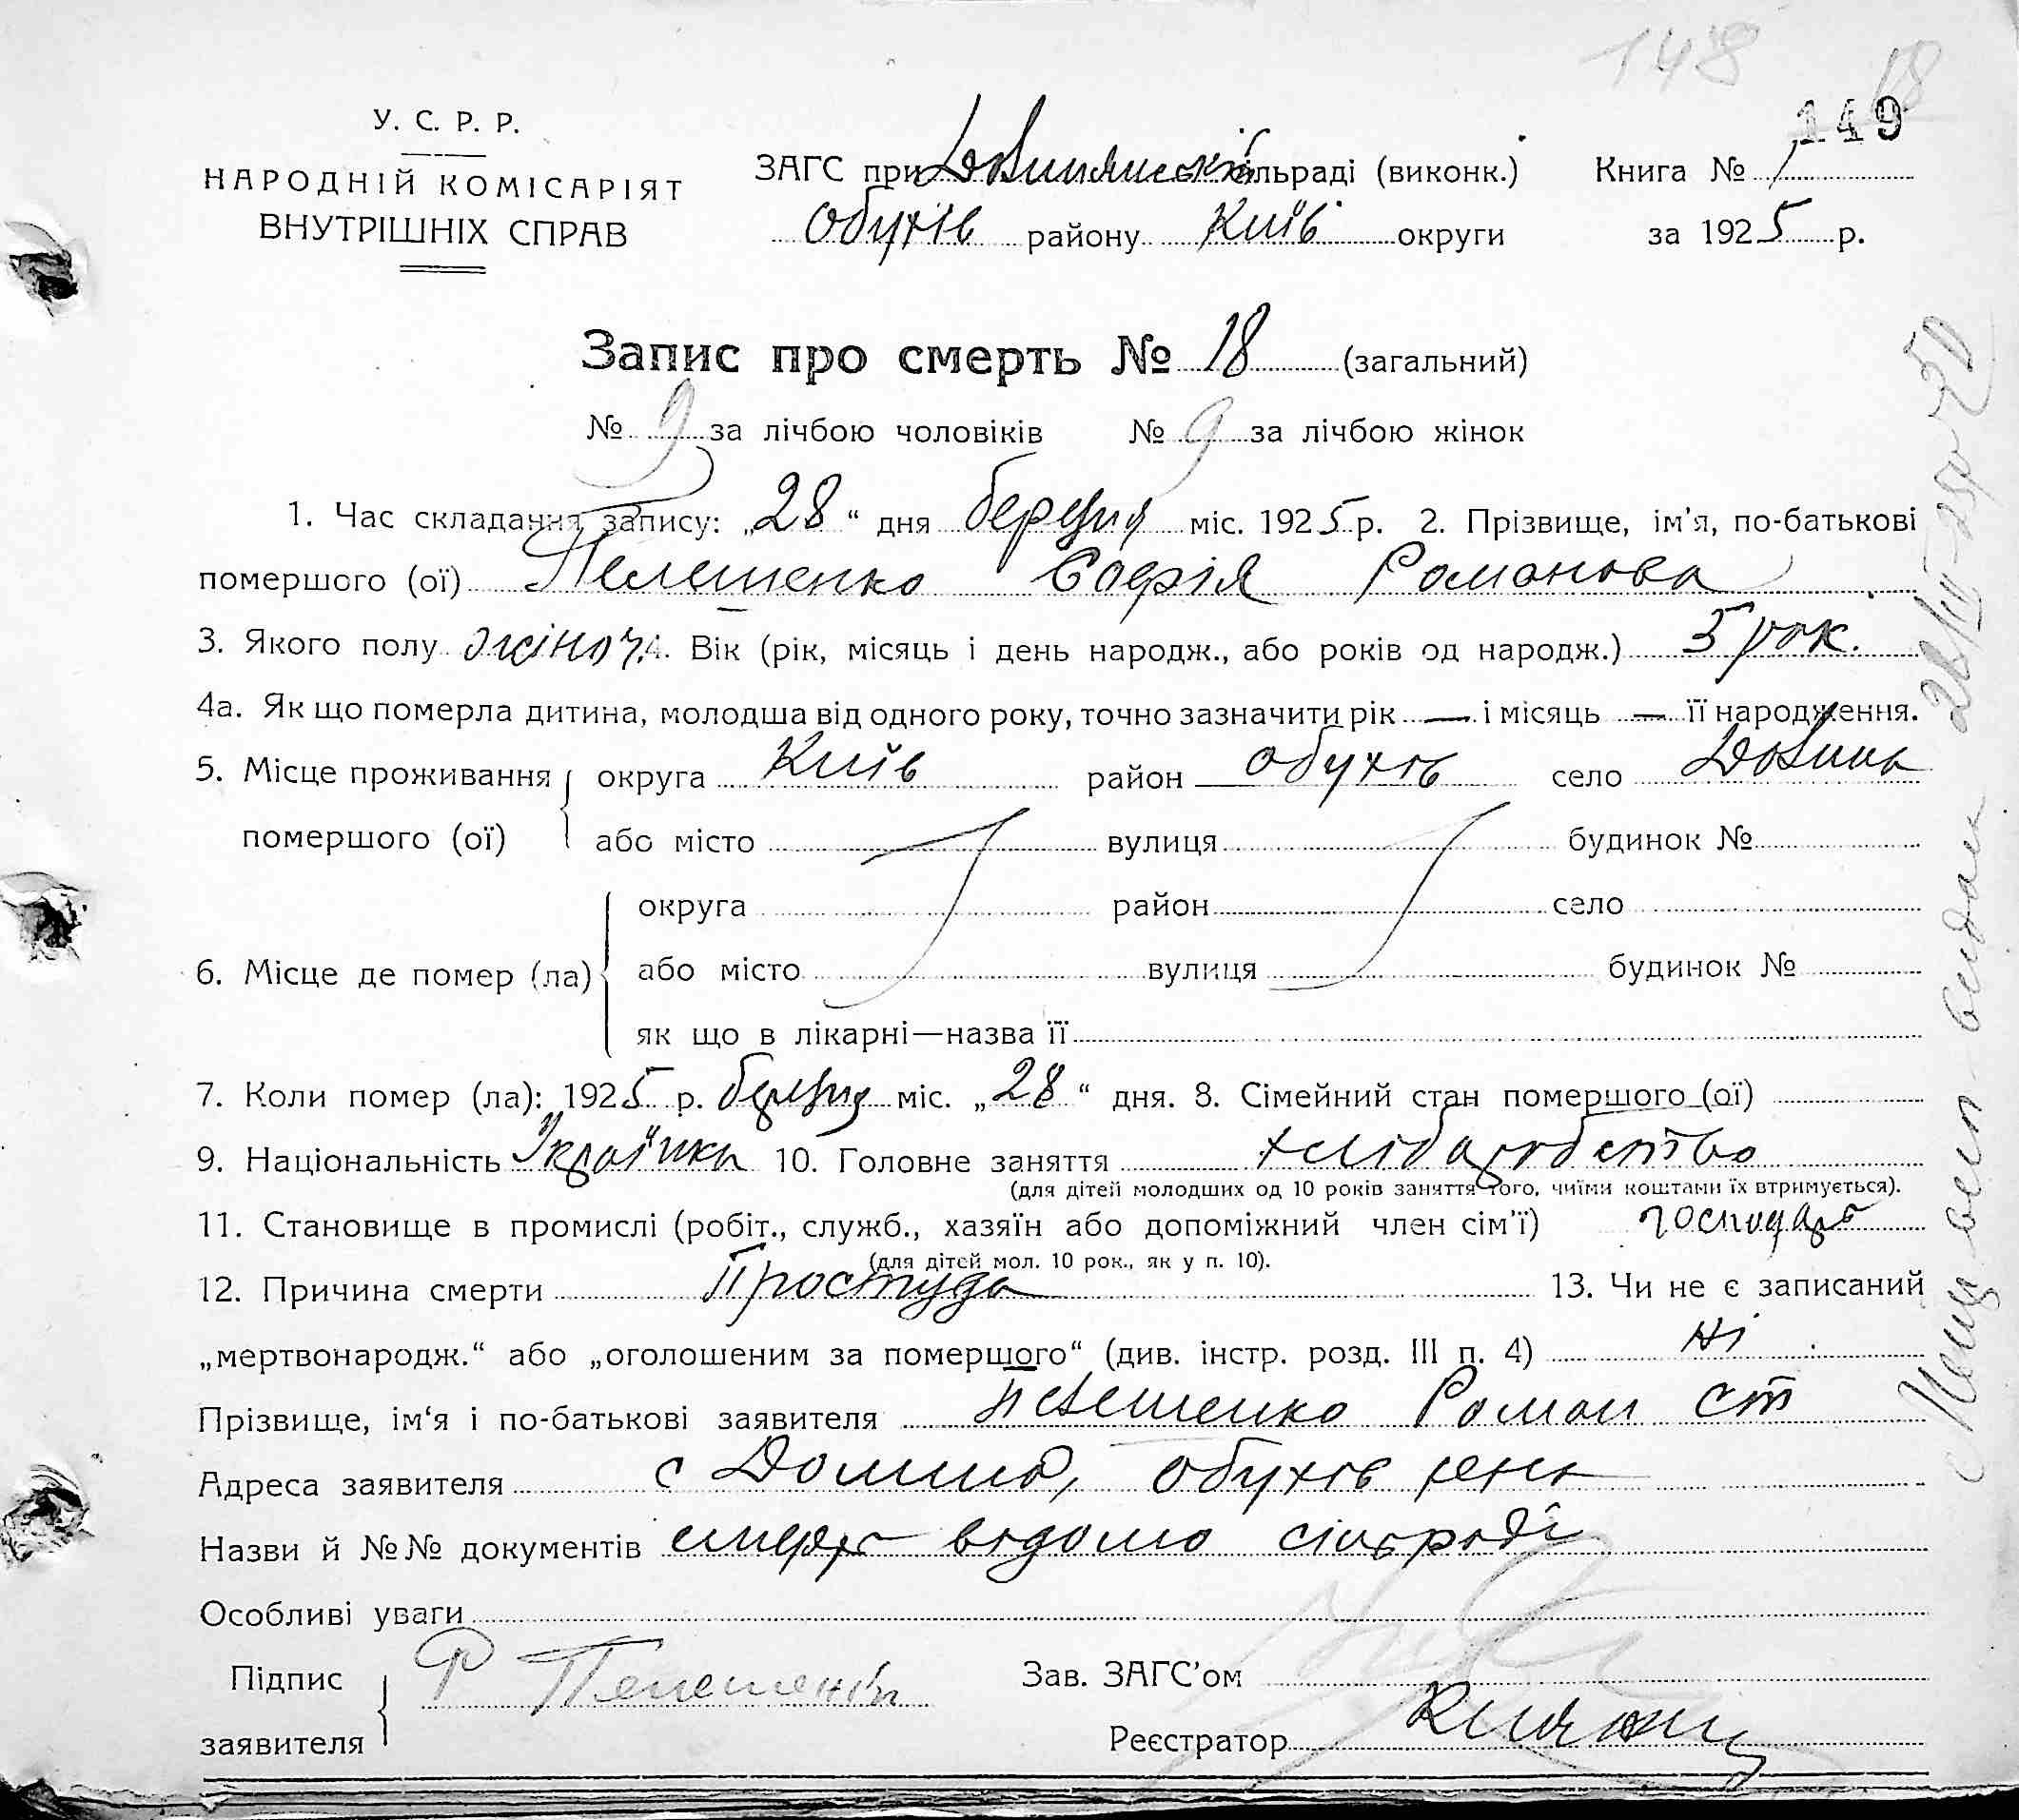 148 18
149
У. С. Р. Р.
НАРОДНІЙ КОМІСАРІЯТ
ВНУТРІШНІХ СПРАВ
ЗАГС при сільраді (виконк.) Книга № 1
Обухів району Київ округи за 1925 р.
Запис про смерть № 18 (загальний)
№ 9 за лічбою чоловіків № 9 за лічбою жінок
1. Час складання запису: „28“ дня березня міс. 1925 р. 2. Прізвище, ім'я, по-батькові
помершого (ої) Пелешенко Софія Романова
3. Якого полу жіноч. 4. Вік (рік, місяць і день народж., або років од народж.) 5 рок.
4а. Як що померла дитина, молодша від одного року, точно зазначити рік — і місяць — її народження.
5. Місце проживання округа Київ район Обухів село
помершого (ої) або місто вулиця будинок №
округа район село
6. Місце де помер (ла) або місто вулиця будинок №
як що в лікарні—назва її
7. Коли помер (ла): 1925 р. березня міс. „28“ дня. 8. Сімейний стан помершого (ої)
9. Національність Українка 10. Головне заняття хліборобство
(для дітей молодших од 10 років заняття того, чиїми коштами їх втримується).
11. Становище в промислі (робіт., служб., хазяїн або допоміжний член сім'ї) господарь
(для дітей мол. 10 рок., як у п. 10).
12. Причина смерти Простуда 13. Чи не є записаний
„мертвонародж.“ або „оголошеним за помершого“ (див. інстр. розд. III п. 4) Ні
Прізвище, ім‘я і по-батькові заявителя Пелешенко Роман ст
Адреса заявителя с Обухів
Назви й №№ документів смерть відомо сільраді
Особливі уваги
Підпис Р Пелешенко Зав. ЗАГС'ом
заявителя Реєстратор